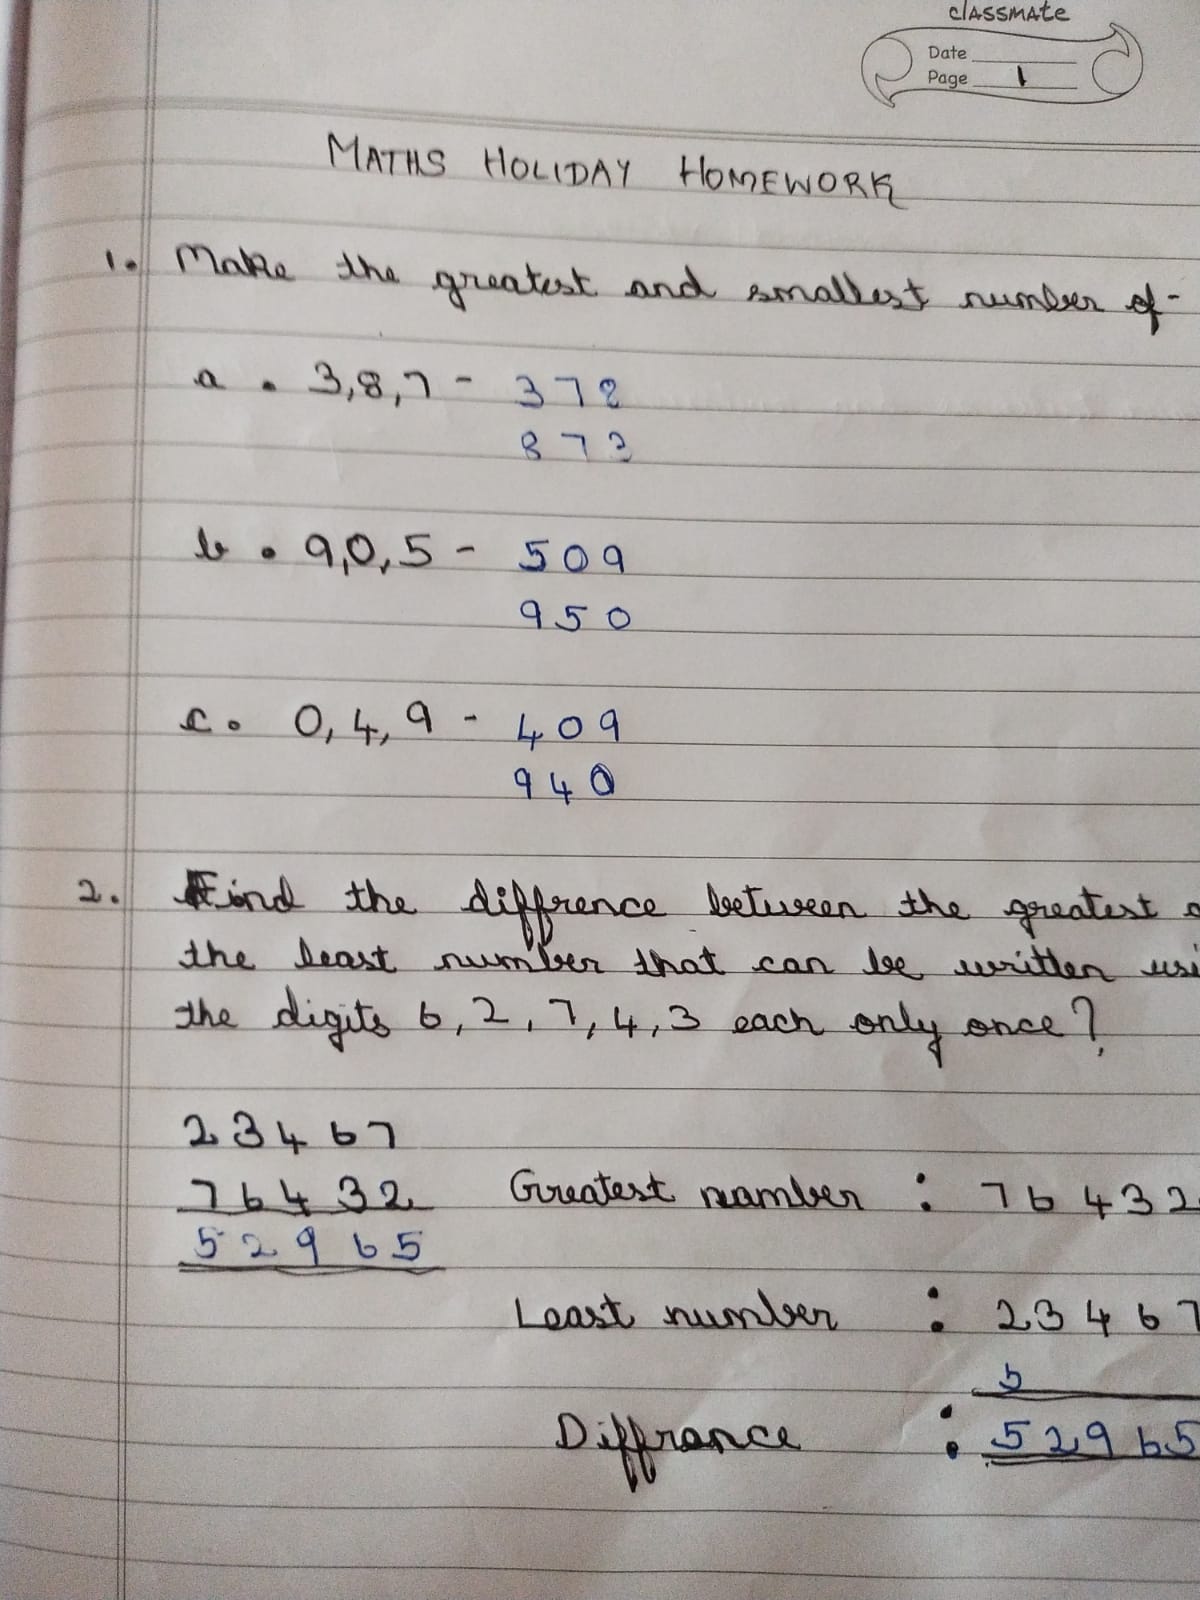 classmate
Date
Page 1
MATHS HOLIDAY HOMEWORK
1. Make the greatest and smallest number of-
a. 3,8,7 - 378
873
b. 9,0,5 - 509
950
c. 0,4,9 - 409
940
2. Find the diffrence between the greatest
the least number that can be written
the digits 6,2,7,4,3 each only once?
23467
76432
52965
Greatest number : 76432
Least number : 23467
5
Diffrance : 52965